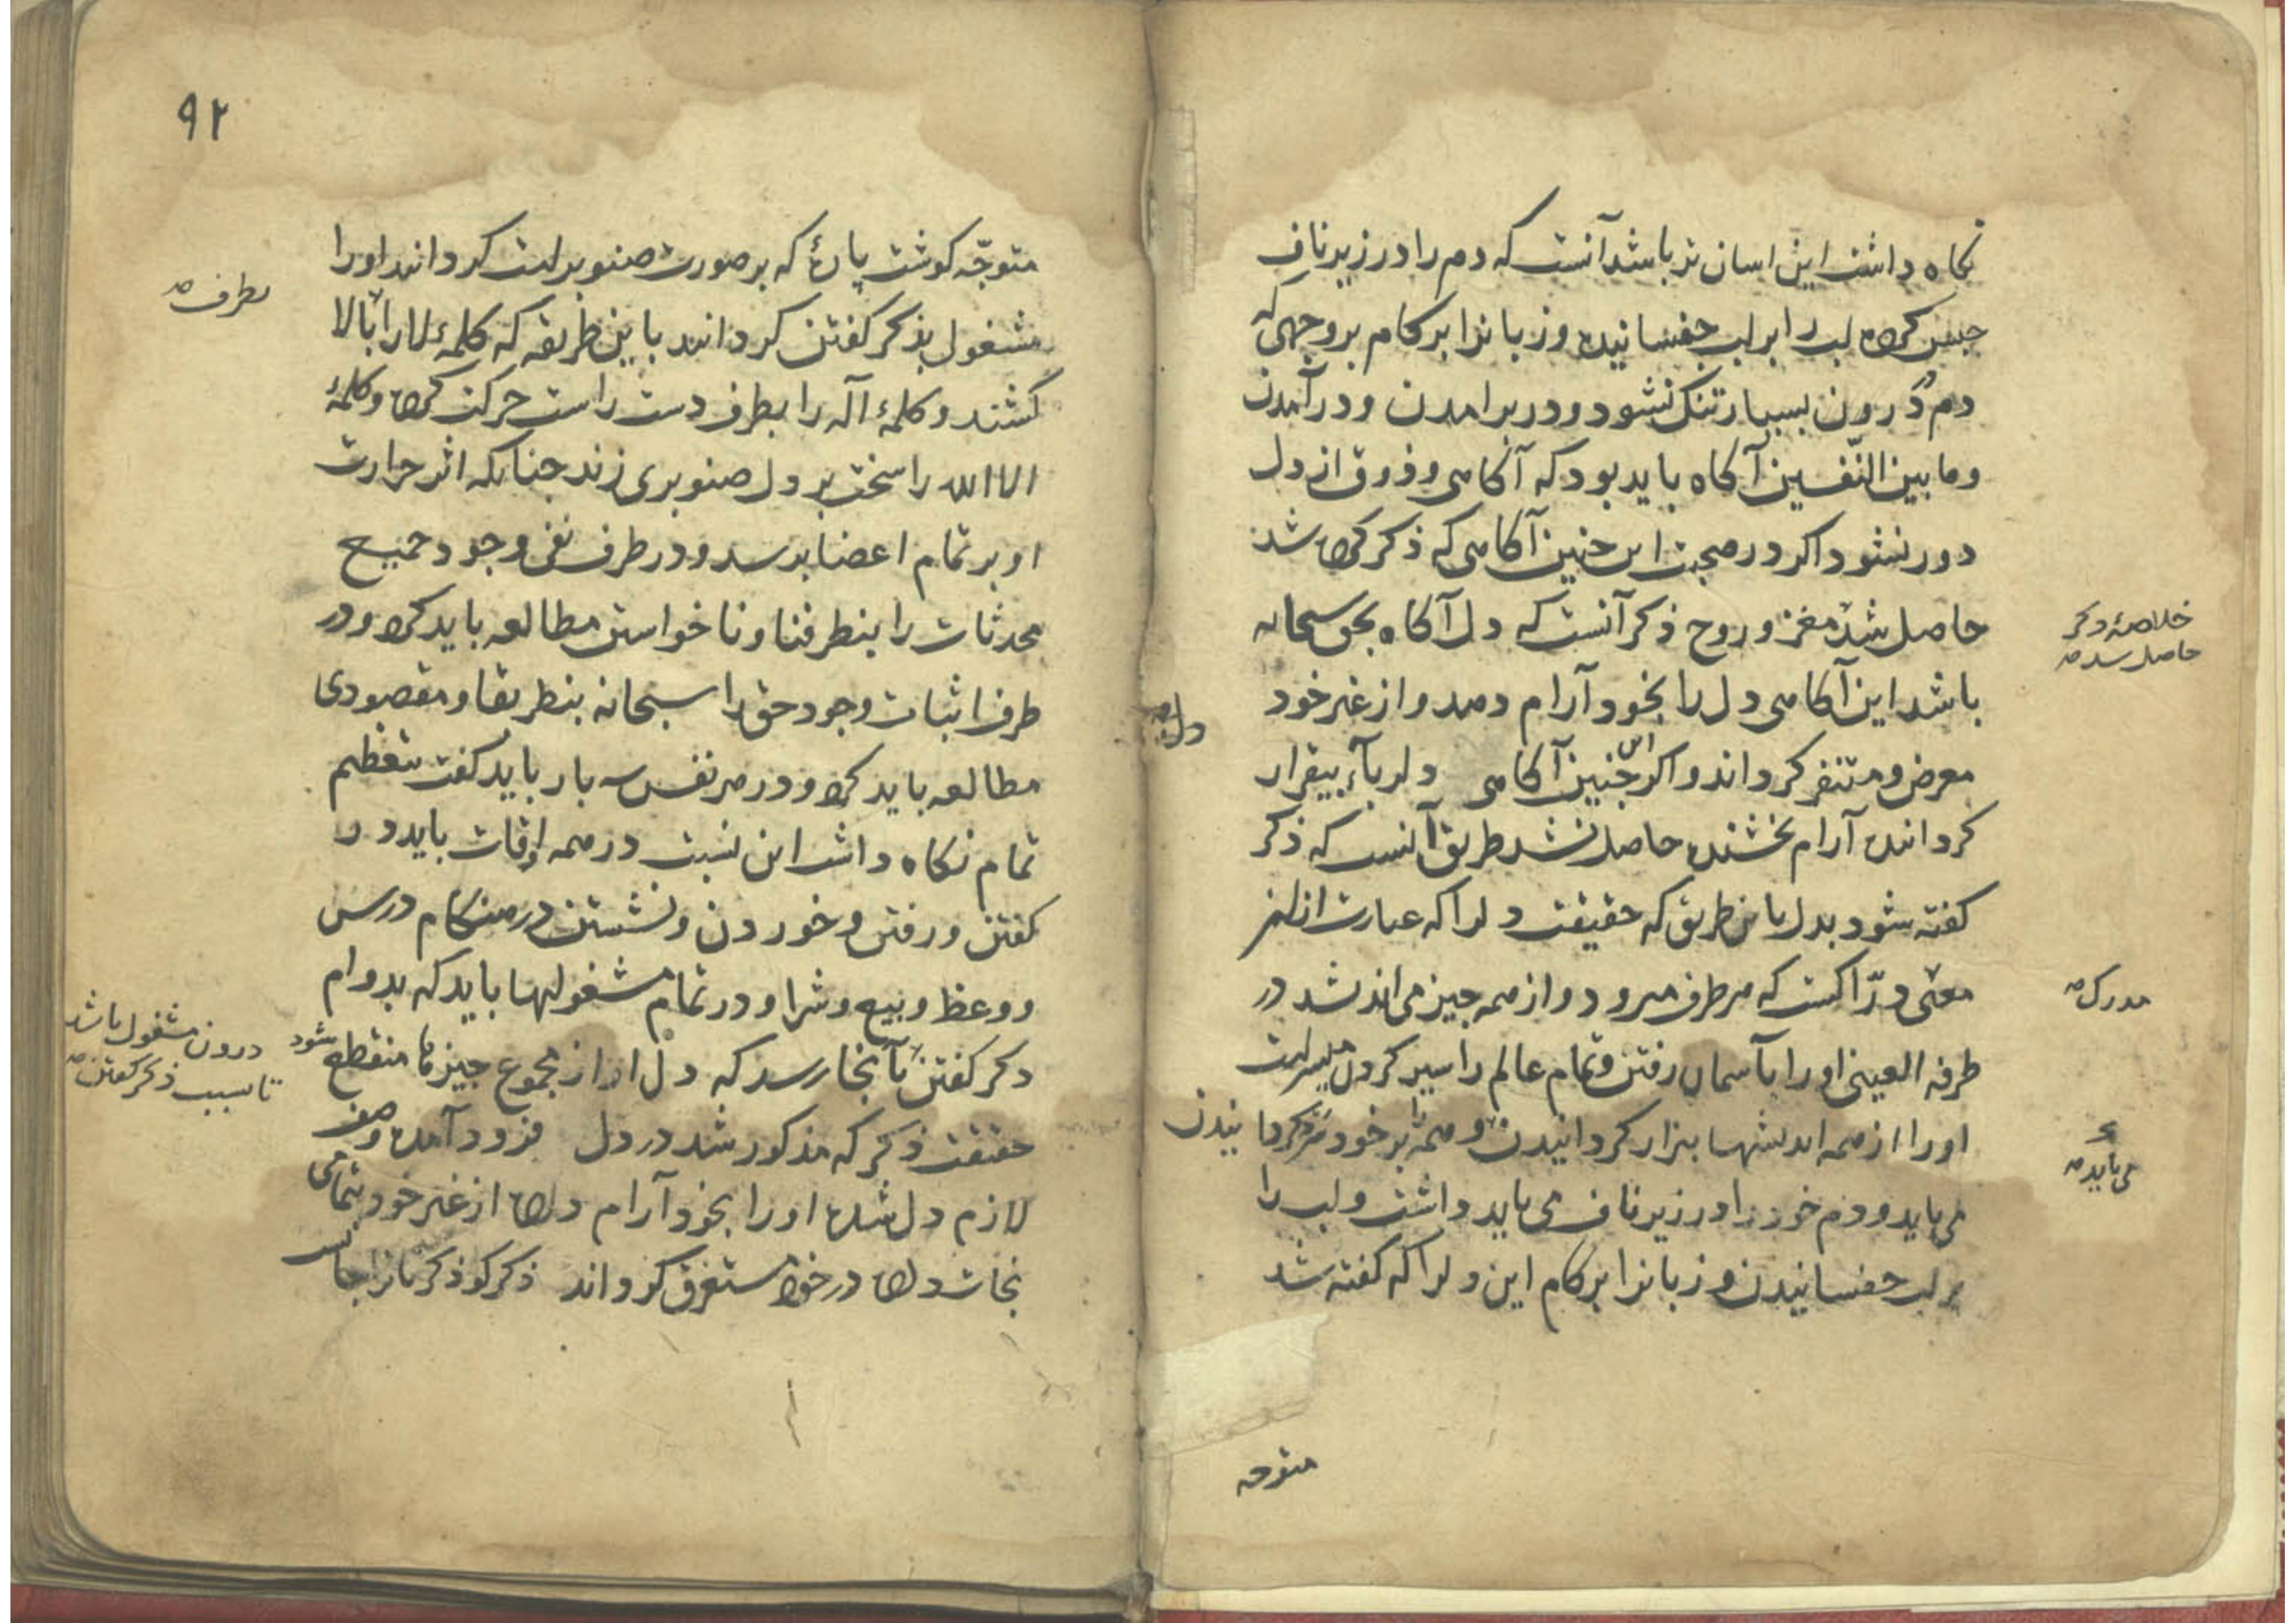 نکاه داشت این اسان تر باشد آنست که دم را در زیر ناف
حبس کرده لب را بر لب جفسانیده و زبانرا بر کام بر وجهی که
دم در درون بسیار تنک نشود و در بر امدن و در آمدن
و ما بین النّفسین آکاه باید بود که آکاهی و ذوق از دل
دور نشود اکر در صحبت این چنین آکاهی که ذکر کرده شد
حاصل شد مغز و روح ذکر آنست که دل آکاه بحق سبحانه
خلاصۀ ذکر
حاصل شد
باشد این آکاهی دل را بخود آرام دهد و از غیر خود
معرض و متنفر کرداند و اکر این چنین آکاهی دلربآء بیقرار
دل
کردانده آرام بخشنده حاصل نشد طریق آنست که ذکر
کفته شود بدل باین طریق که حقیقت دلرا که عبارت از ان
معنی درّاکست که هر طرف میرود و از همه چیز می اندیشد در
مدرک
طرفه العینی او را بآسمان رفتن و تمام عالم را سیر کردن میسر است
او را از همه اندیشها بیزار کردانیدن و همه بر خود کردانیدن
می باید
می باید و دم خود را در زیر ناف می باید داشت و لب را
بر لب جفسانیدن و زبانرا بر کام این دلرا که کفته شد
متوجه
۹۲
متوجّه کوشت پارۀ که بر صورت صنوبر است کردانند او را
مشغول بذکر کفتن کردانند باین طریقه که کلمۀ لا را ببالا
بطرف
کشند و کلمۀ اله را بطرف دست راست حرکت کرده و کلمۀ
الا الله را سخت بر دل صنوبری زند چنانکه اثر حرارت
او بر تمام اعضا برسد و در طرف نفی وجود جمیع
محدثات را بنظر فنا و ناخواستن مطالعه باید کرد و در
طرف اثبات وجود حق را سبحانه بنظر بقا و مقصودی
مطالعه باید کرد و در هر نفس سه بار باید کفت بتعظیم
تمام نکاه داشت این نسبت در همه اوقات باید در
کفتن و رفتن و خوردن و نشستن در هنکام درس
و وعظ و بیع و شرا و در تمام مشغولیها باید که بدوام
درون مشغول باشد
تا بسبب ذکر کفتن
ذکر کفتن بآنجا رسد که دل او از مجموع چیزها منقطع شود
حقیقت ذکر که مذکور شد در دل فرود آمده وصف
لازم دل شده او را بخود آرام داده از غیر خود بتمامی
نجات داده در خود مستغرق کرداند ذکر کو ذکر تا ترا جانست